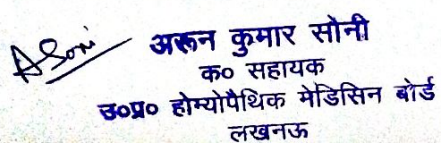 ASoni अरून कुमार सोनी
क० सहायक
उ०प्र० होम्योपैथिक मेडिसिन बोर्ड
लखनऊ